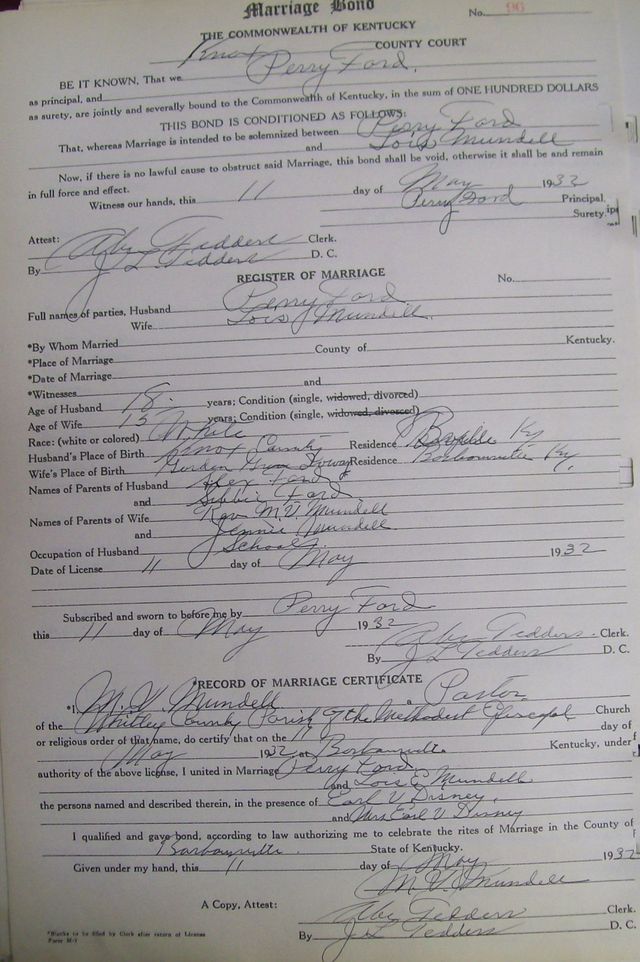 Marriage Bond
No. 96
THE COMMONWEALTH OF KENTUCKY
Knox COUNTY COURT
BE IT KNOWN, That we Perry Ford,
as principal, and
as surety, are jointly and severally bound to the Commonwealth of Kentucky, in the sum of ONE HUNDRED DOLLARS
THIS BOND IS CONDITIONED AS FOLLOWS:
That, whereas Marriage is intended to be solemnized between Perry Ford
and Lois Mundell
Now, if there is no lawful cause to obstruct said Marriage, this bond shall be void, otherwise it shall be and remain
in full force and effect.
Witness our hands, this 11 day of May 1932
Perry Ford Principal.
Surety.
Attest:
Abe Tedders Clerk.
By J L Tedders D. C.
REGISTER OF MARRIAGE
No.
Full names of parties, Husband Perry Ford
Wife Lois Mundell
*By Whom Married
*Place of Marriage County of Kentucky.
*Date of Marriage
*Witnesses and
Age of Husband 18 years; Condition (single, widowed, divorced)
Age of Wife 15 years; Condition (single, widowed, divorced)
Race: (white or colored) White
Husband's Place of Birth Knox County Residence Ky
Wife's Place of Birth Iowa Residence Barbourville Ky.
Names of Parents of Husband Alex Ford
and Sibbie Ford
Names of Parents of Wife Rev. M. V Mundell
and Jennie Mundell
Occupation of Husband School
Date of License 11 day of May 1932
Subscribed and sworn to before me by Perry Ford
this 11 day of May 1932
Abe Tedders Clerk.
By J L Tedders D. C.
RECORD OF MARRIAGE CERTIFICATE
*I, M. V. Mundell a Pastor
of the Whitley County Parish of the Methodist Episcopal Church
or religious order of that name, do certify that on the 11 day of
May 1932 at Barbourville Kentucky, under
authority of the above license, I united in Marriage Perry Ford
and Lois E Mundell
the persons named and described therein, in the presence of Earl V Disney,
and Mrs Earl V Disney
I qualified and gave bond, according to law authorizing me to celebrate the rites of Marriage in the County of
Barbourville State of Kentucky.
Given under my hand, this 11 day of May 1932
M. V. Mundell
A Copy, Attest: Abe Tedders Clerk.
By J L Tedders D. C.
*Blanks to be filled by Clerk after return of License
Form M-1